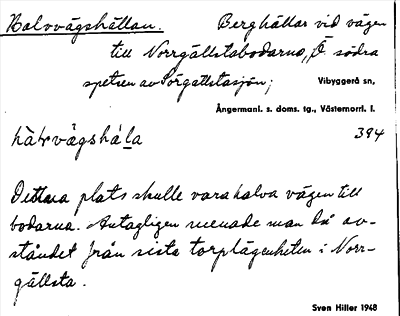 Halvvägshällan. Berghällar vid vägen
till Norrgällstabodarna, Å södra
spetsen av Sörgällstasjön; Vibyggerå sn,
Ångermanl. s. doms. tg., Västernorrl. l.
394
Denna plats skulle vara halva vägen till
bodarna. Antagligen menade man då av-
ståndet från sista torplägenheten i Norr-
gällsta.
Sven Hiller 1948